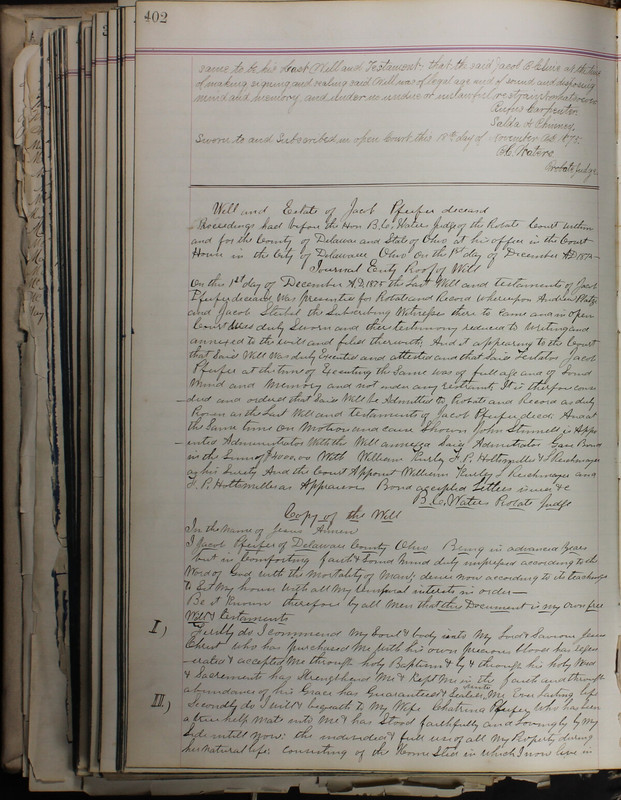 402
same to be his Last Will and Testament, that the said Jacob at the time
of making signing and sealing said Will was of legal age and of sound and disposing
mind and memory and under no undue or unlawful restraint whatsoever
Rufus Carpenter
Salda A
Sworn to and Subscribed in open Court this 18th day of November A.D. 1875.
B.C. Waters
Probate Judge
Will and Estate of Jacob Pfeifer deceasd
Proceedings had before the Hon B.C. Waters Judge of the Probate Court within
and for the County of Delaware and State of Ohio at his office in the Court
House in the City of Delaware Ohio on the 1st day of December A.D. 1875-
Journal Enty Proof of Will
On this 1st day of December A.D. 1875 the Last Will and testaments of Jacob
Pfeifer deceasd was presented for Probate and Record whereupon Andrew
and Jacob the Subscribing Witnesses there to Came and in open
Court was duly Sworn and their testimony reduced to writing and
annexed to the will and filed therewith, And it appearing to the Court
that Said Will was duly Executed and attested and that Said Testator Jacob
Pfeifer at the time of Executing the Same was of full age and of Sound
Mind and Memory and not under any restraint It is therefore consi
-dred and ordered that Said Will be Admitted to Probate and Record as duly
Proven as the Last Will and testaments of Jacob Pfeifer deced. And at
the Same time on Motion and cause Shown John is Appo
-inted Administrator With the Will annexed Said Admistrator Gave Bond
in the Sum of With William F. P. &
as his Surety And the Court Appoint William and
F. P. as Appraisers Bond accepted Letters issued &c
B.C. Waters Probate Judge
Copy of the Will
In the Name of Jesus Amen
I Jacob Pfeifer of Delaware County Ohio Being in advanced years
but in Comforting faith & Sound Mind duly impressed according to the
Word of God with the Mortality of Man; desire now according to its teachings
to Set My house with all My temporal interests in order—
Be it Known therefore by all Men that this Document is my own free
Will & testaments
I) Firstly do I commend My Soul & body into My Lord & Saviour Jesus
Christ who has purchased Me with his own precious blood has regen
-erated & accepted Me through holy Baptism & by & through his holy Word
& Sacrements has Strengthened Me & Kept Me in the faith and through
abundance of his Grace has Guaranteed & Sealed unto Me Ever Lasting life
II) Secondly do I will & bequeath to My Wife Chatrina Pfeifer Who has been
a true help Mate unto Me & has Stood faithfully and Lovingly by My
Side untill Now: the undivided & full use of all My Property during
her natural life; consisting of the Home Sted in which I now live in